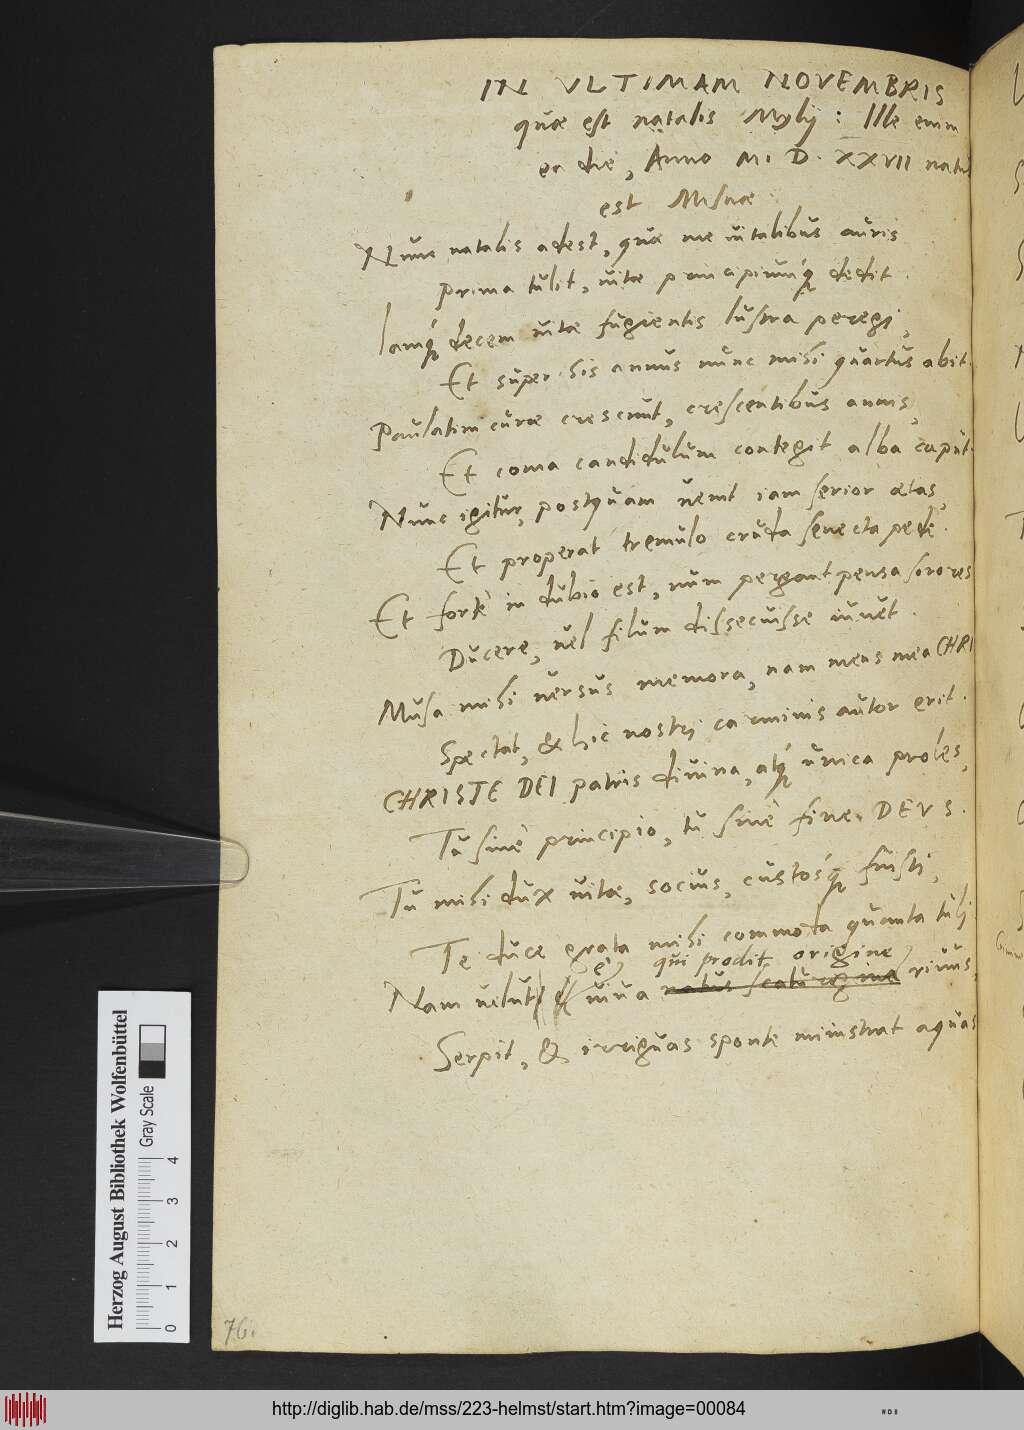 IN VLTIMAM NOVEMBRIS
quæ est natalis Mylij: Ille enim
ea die, Anno M. D. XXVII natus
est Misnæ
Nunc natalis adest, quæ me uitalibus auris
Prima tulit, uitæ principiumq́ dedit.
Iamq́ decem uitæ fugientis lustra peregi,
Et super his annus nunc mihi quartus abit.
Paulatim curæ crescunt, crescentibus annis,
Et coma candidulum contegit alba caput.
Nunc igitur, postquam uenit iam serior ætas,
Et properat tremulo cruda senecta pede.
Et forte in dubio est, num pergant pensa sorores
Ducere, uel filum dissecuisse iuuet.
Musa mihi uersus memora, nam mens mea CHRI
Spectat, & hic nostri carminis autor erit.
CHRISTE DEI patris diuina, atq́ unica proles,
Tu sine principio, tu sine fine DEVS.
Tu mihi dux uitæ, socius, custosq́ fuisti,
Te duce grata mihi commoda quanta tuli
qui prodit origine
Nam uelut è uiua natus scaturigine riuus,
Serpit, & irriguas sponte ministrat aquas
76.
Herzog August Bibliothek Wolfenbüttel
Gray Scale
0 1 2 3 4
http://diglib.hab.de/mss/223-helmst/start.htm?image=00084